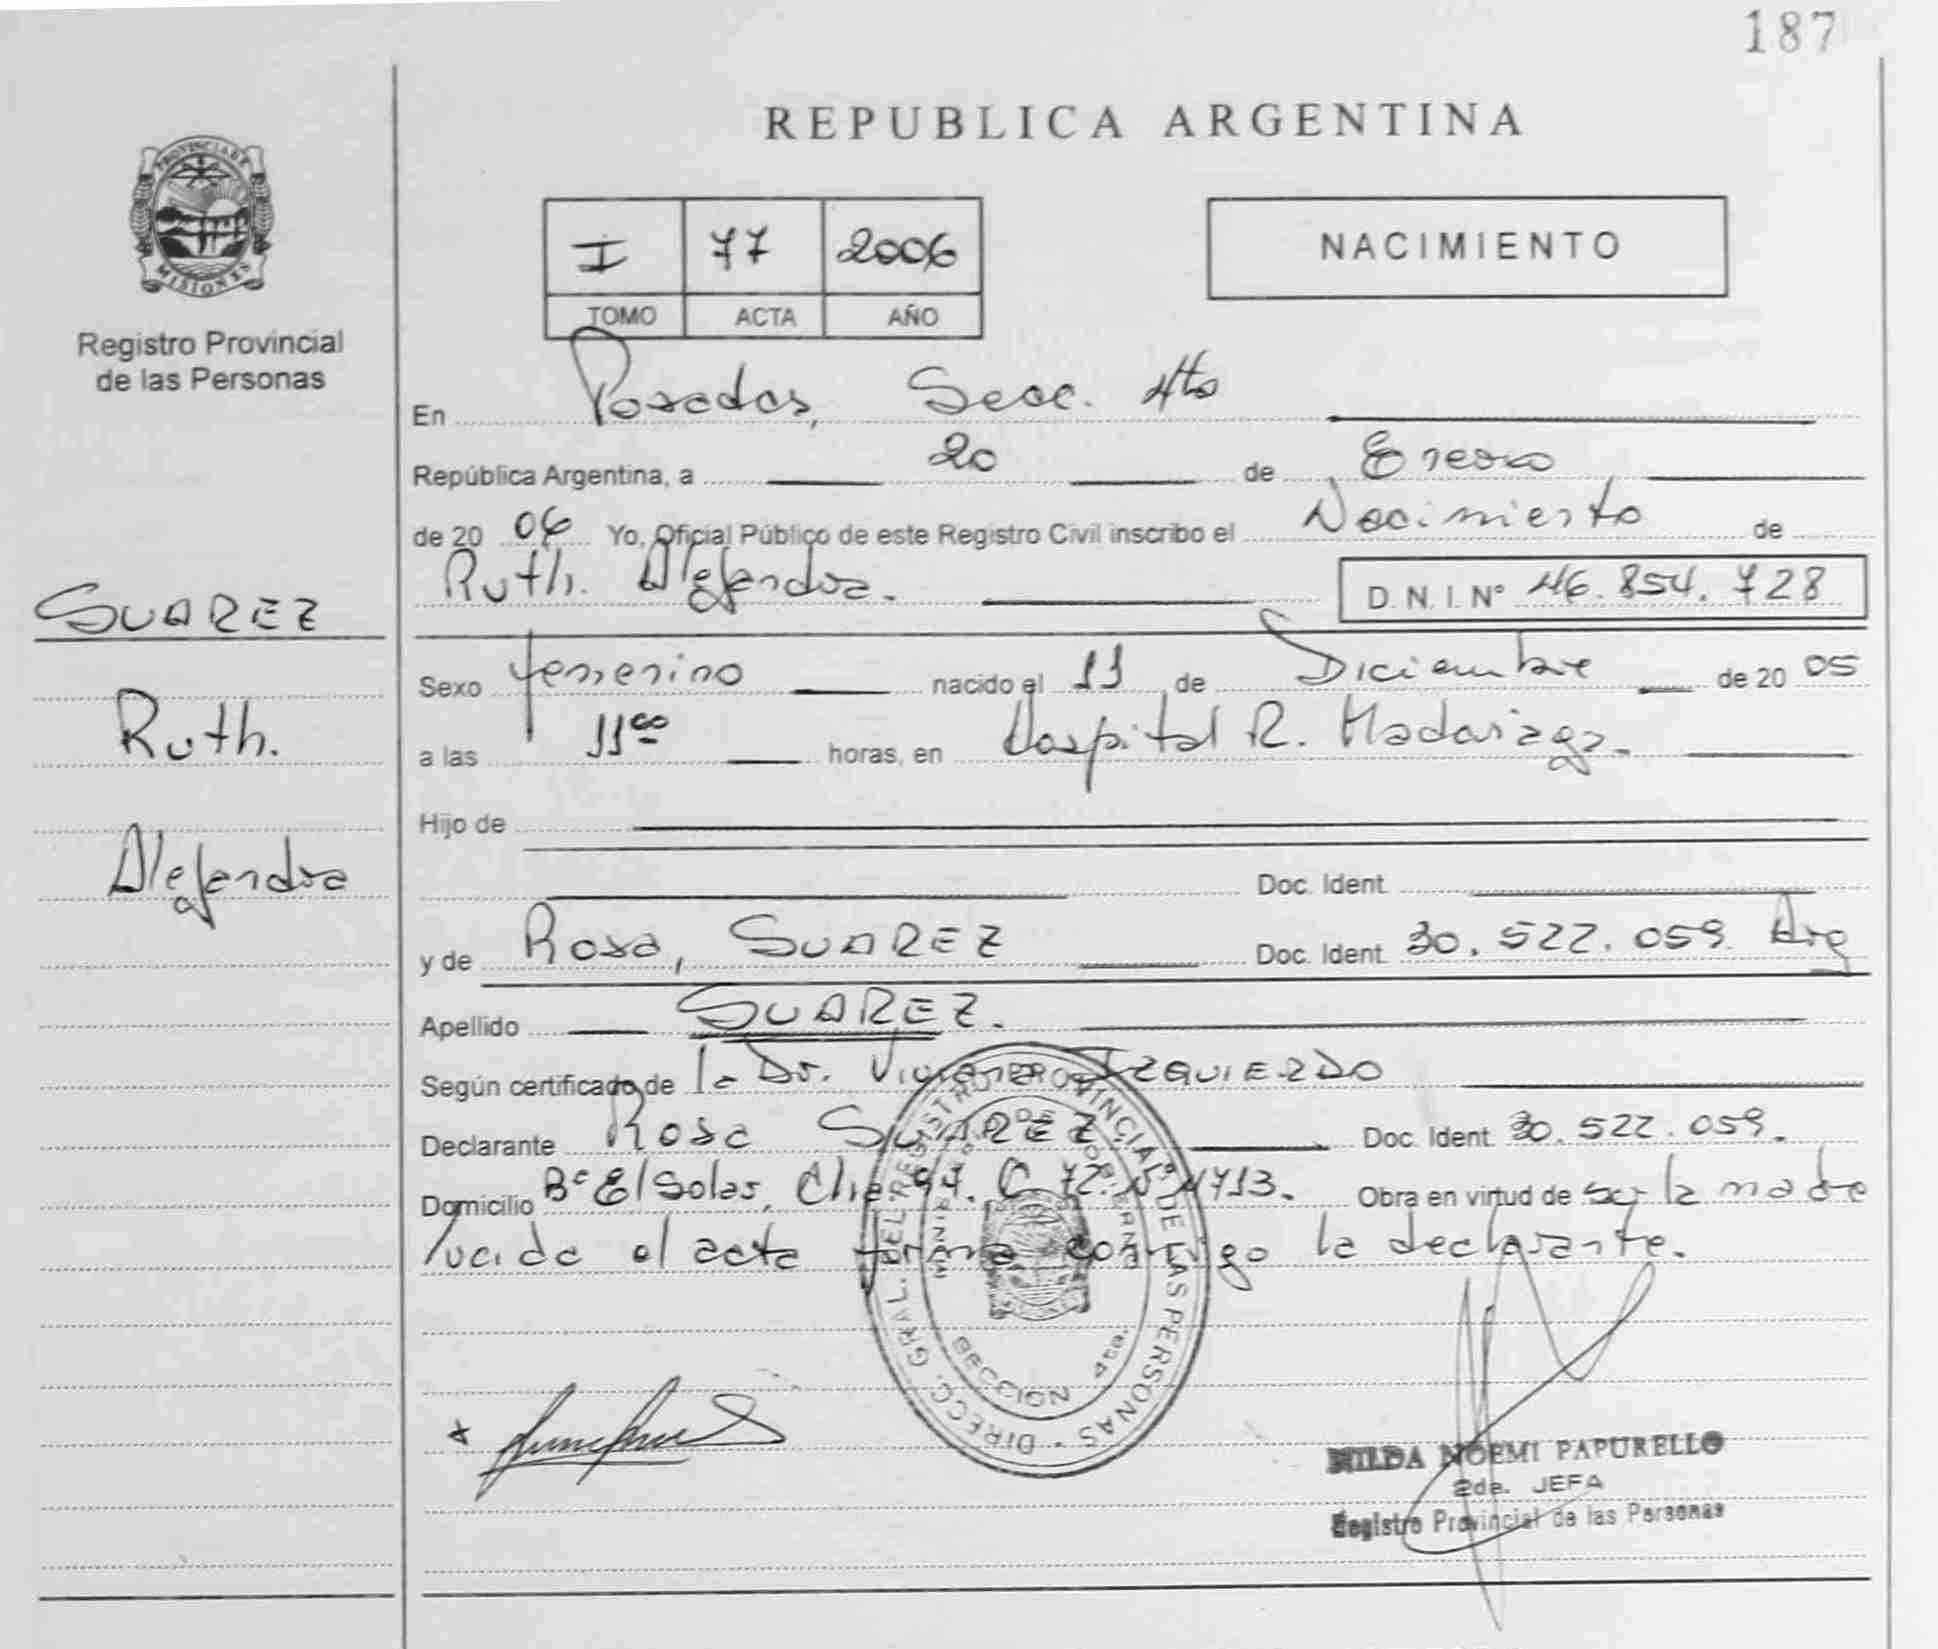 187
REPUBLICA ARGENTINA
PROVINCIA DE MISIONES
Registro Provincial
de las Personas
I 77 2006
TOMO ACTA AÑO
NACIMIENTO
En Posadas, Secc. 4ta
República Argentina, a 20 de Enero
de 20 06 Yo, Oficial Público de este Registro Civil inscribo el Nacimiento de
Ruth. Alejandra. D. N. I. N° 46.854.728
SUAREZ
Ruth.
Alejandra
Sexo femenino nacido el 11 de Diciembre de 20 05
a las 11 00 horas, en Hospital R. Madariaga.
Hijo de
Doc. Ident.
y de Rosa, SUAREZ Doc. Ident. 30.522.059 Arg
Apellido SUAREZ.
Según certificado de la Dr. Viviana IZQUIERDO
Declarante Rosa SUAREZ Doc. Ident. 30.522.059.
Domicilio B° El Solar, 4713. Obra en virtud de ser la madre
el acta firma conmigo la declarante.
DIRECC. GRAL. DEL REGISTRO PROVINCIAL DE LAS PERSONAS
MINISTERIO DE GOBIERNO
SECCION 4ta.
MILDA NOEMI PAPURELLO
2da. JEFA
Registro Provincial de las Personas